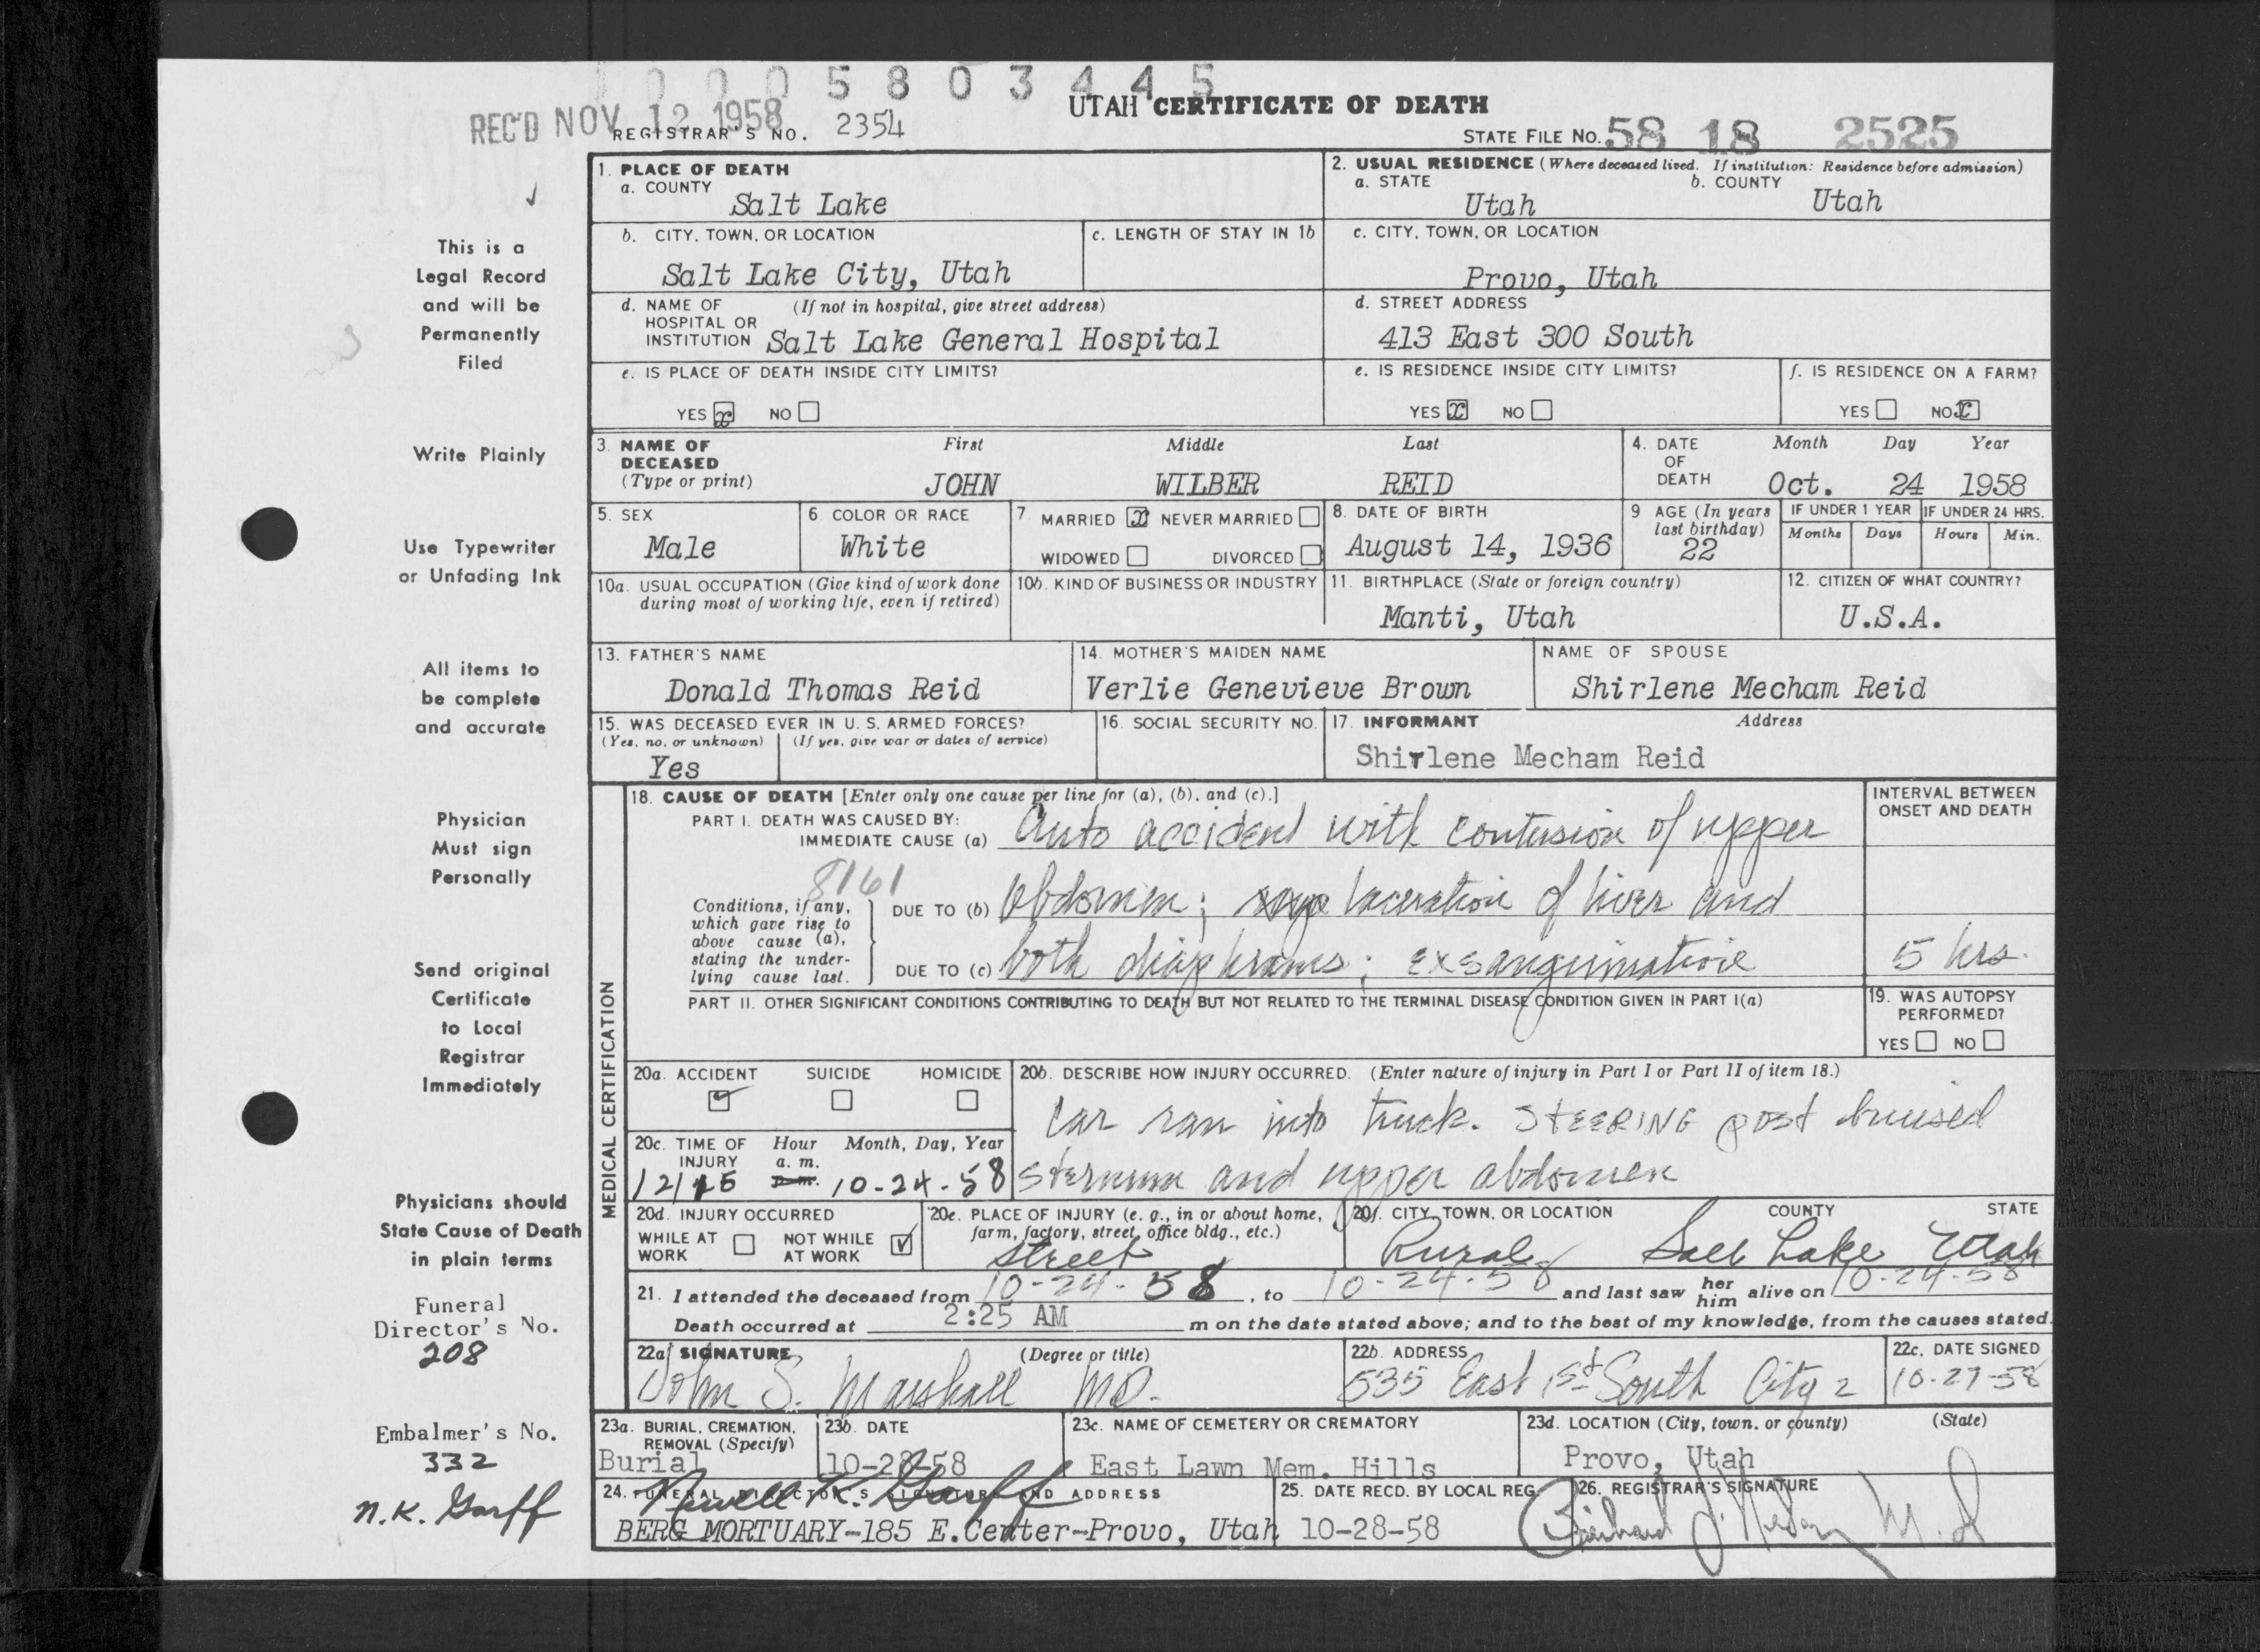 0 0 0 5 8 0 3 4 4 5
REC'D NOV 12 1958
REGISTRAR'S NO. 2354
UTAH CERTIFICATE OF DEATH
STATE FILE NO. 58 18 2525
1. PLACE OF DEATH
a. COUNTY
Salt Lake
2. USUAL RESIDENCE (Where deceased lived. If institution: Residence before admission)
a. STATE b. COUNTY
Utah Utah
b. CITY, TOWN, OR LOCATION
Salt Lake City, Utah
c. LENGTH OF STAY IN 1b
c. CITY, TOWN, OR LOCATION
Provo, Utah
d. NAME OF (If not in hospital, give street address)
HOSPITAL OR
INSTITUTION Salt Lake General Hospital
d. STREET ADDRESS
413 East 300 South
e. IS PLACE OF DEATH INSIDE CITY LIMITS?
YES x NO
e. IS RESIDENCE INSIDE CITY LIMITS?
YES x NO
f. IS RESIDENCE ON A FARM?
YES NO x
3. NAME OF
DECEASED
(Type or print)
First Middle Last
JOHN WILBER REID
4. DATE
OF
DEATH
Month Day Year
Oct. 24 1958
5. SEX
Male
6. COLOR OR RACE
White
7. MARRIED x NEVER MARRIED
WIDOWED DIVORCED
8. DATE OF BIRTH
August 14, 1936
9. AGE (In years
last birthday)
22
IF UNDER 1 YEAR
Months Days
IF UNDER 24 HRS.
Hours Min.
10a. USUAL OCCUPATION (Give kind of work done
during most of working life, even if retired)
10b. KIND OF BUSINESS OR INDUSTRY
11. BIRTHPLACE (State or foreign country)
Manti, Utah
12. CITIZEN OF WHAT COUNTRY?
U.S.A.
13. FATHER'S NAME
Donald Thomas Reid
14. MOTHER'S MAIDEN NAME
Verlie Genevieve Brown
NAME OF SPOUSE
Shirlene Mecham Reid
15. WAS DECEASED EVER IN U. S. ARMED FORCES?
(Yes, no, or unknown) (If yes, give war or dates of service)
Yes
16. SOCIAL SECURITY NO.
17. INFORMANT Address
Shirlene Mecham Reid
MEDICAL CERTIFICATION
18. CAUSE OF DEATH [Enter only one cause per line for (a), (b), and (c).]
PART I. DEATH WAS CAUSED BY:
IMMEDIATE CAUSE (a) Auto accident with contusion of upper
8161
Conditions, if any,
which gave rise to
above cause (a),
stating the under-
lying cause last.
DUE TO (b) abdomen; laceration of liver and
DUE TO (c) both diaphrams; exsanguination
INTERVAL BETWEEN
ONSET AND DEATH
5 hrs.
PART II. OTHER SIGNIFICANT CONDITIONS CONTRIBUTING TO DEATH BUT NOT RELATED TO THE TERMINAL DISEASE CONDITION GIVEN IN PART I(a)
19. WAS AUTOPSY
PERFORMED?
YES NO
20a. ACCIDENT SUICIDE HOMICIDE
20b. DESCRIBE HOW INJURY OCCURRED. (Enter nature of injury in Part I or Part II of item 18.)
Car ran into truck. STEERING post bruised
sternum and upper abdomen
20c. TIME OF Hour Month, Day, Year
INJURY a. m.
p. m.
12:15 10-24-58
20d. INJURY OCCURRED
WHILE AT NOT WHILE
WORK AT WORK
20e. PLACE OF INJURY (e. g., in or about home,
farm, factory, street, office bldg., etc.)
Street
20f. CITY, TOWN, OR LOCATION COUNTY STATE
Rural Salt Lake Utah
21. I attended the deceased from 10-24-58, to 10-24-58 and last saw her him alive on 10-24-58
Death occurred at 2:25 AM m on the date stated above; and to the best of my knowledge, from the causes stated.
22a. SIGNATURE (Degree or title)
John S. Marshall MD.
22b. ADDRESS
535 East 1st South City 2
22c. DATE SIGNED
10-27-58
23a. BURIAL, CREMATION,
REMOVAL (Specify)
Burial
23b. DATE
10-28-58
23c. NAME OF CEMETERY OR CREMATORY
East Lawn Mem. Hills
23d. LOCATION (City, town, or county) (State)
Provo, Utah
24. FUNERAL DIRECTOR'S SIGNATURE AND ADDRESS
Newell K. Garff
BERG MORTUARY-185 E.Center-Provo, Utah
25. DATE RECD. BY LOCAL REG.
10-28-58
26. REGISTRAR'S SIGNATURE
M.D
This is a
Legal Record
and will be
Permanently
Filed
Write Plainly
Use Typewriter
or Unfading Ink
All items to
be complete
and accurate
Physician
Must sign
Personally
Send original
Certificate
to Local
Registrar
Immediately
Physicians should
State Cause of Death
in plain terms
Funeral
Director's No.
208
Embalmer's No.
332
N.K. Garff